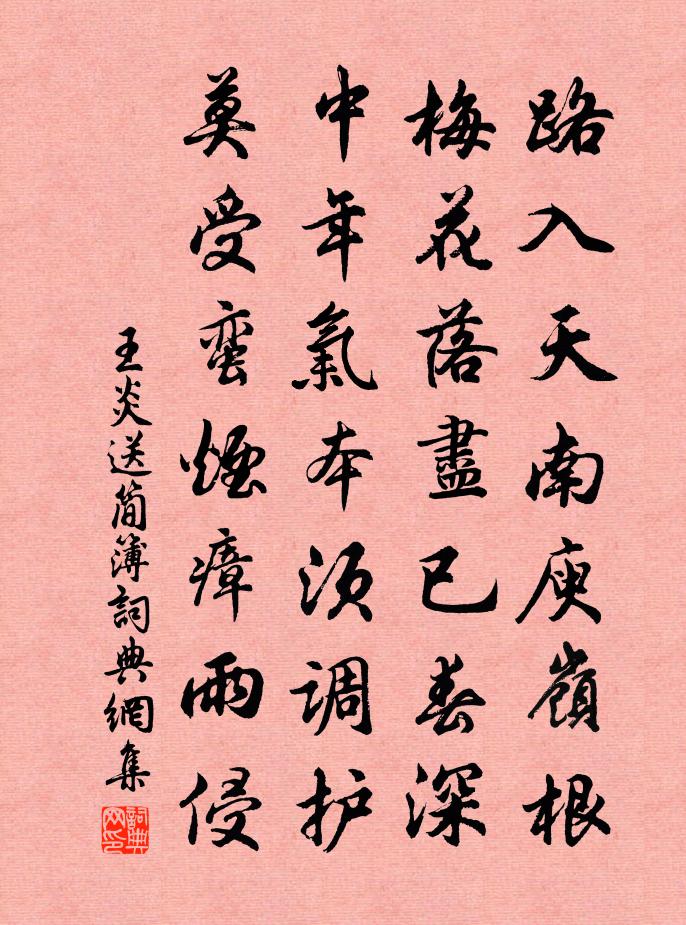 路入天南庾嶺根
梅花落盡已春深
中年氣本须调护
莫受蛮煙瘴雨侵
王炎送简簿詞典網集
詞典网印